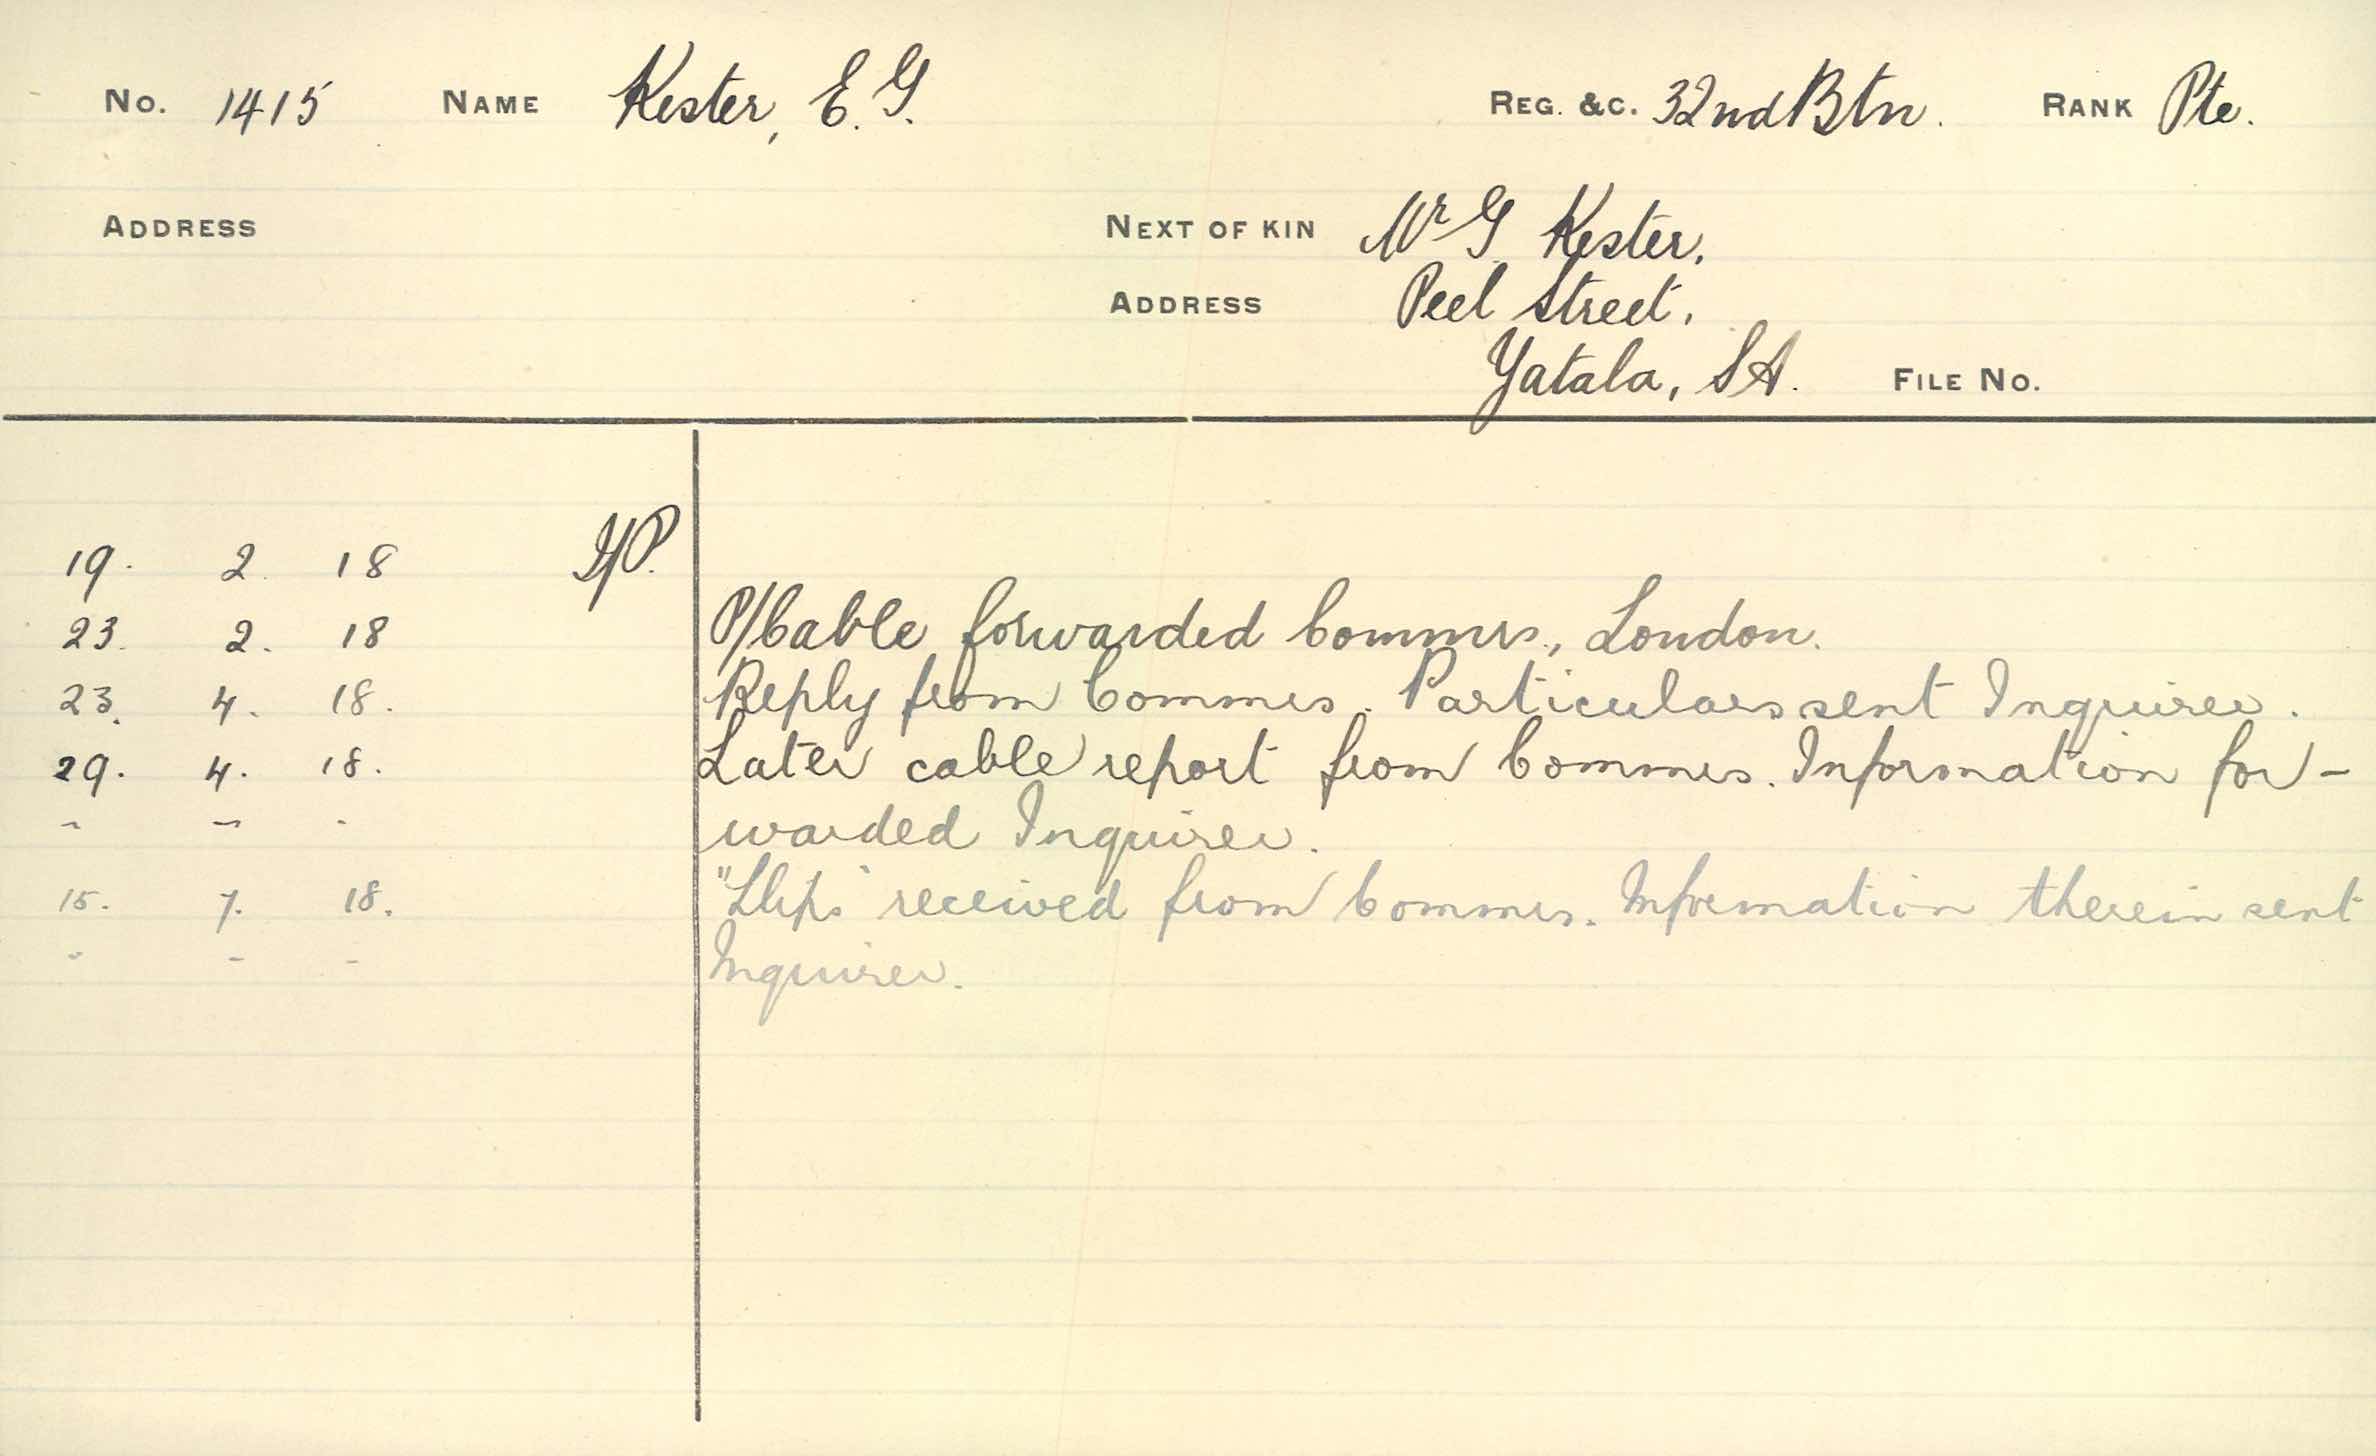 No. 1415 NAME Kester, E. G. REG. &C. 32nd Btn. RANK Pte.
ADDRESS NEXT OF KIN Mr G Kester,
ADDRESS Peel Street,
Yatala, S A. FILE No.
19. 2. 18
23. 2. 18 P/Cable forwarded Commrs., London.
23. 4. 18. Reply from Commrs. Particulars sent Inquirer.
29. 4. 18. Later cable report from Commrs. Information for-
" " " warded Inquirer.
15. 7. 18. "Slips" received from Commrs. Information therein sent
" " " Inquirer.